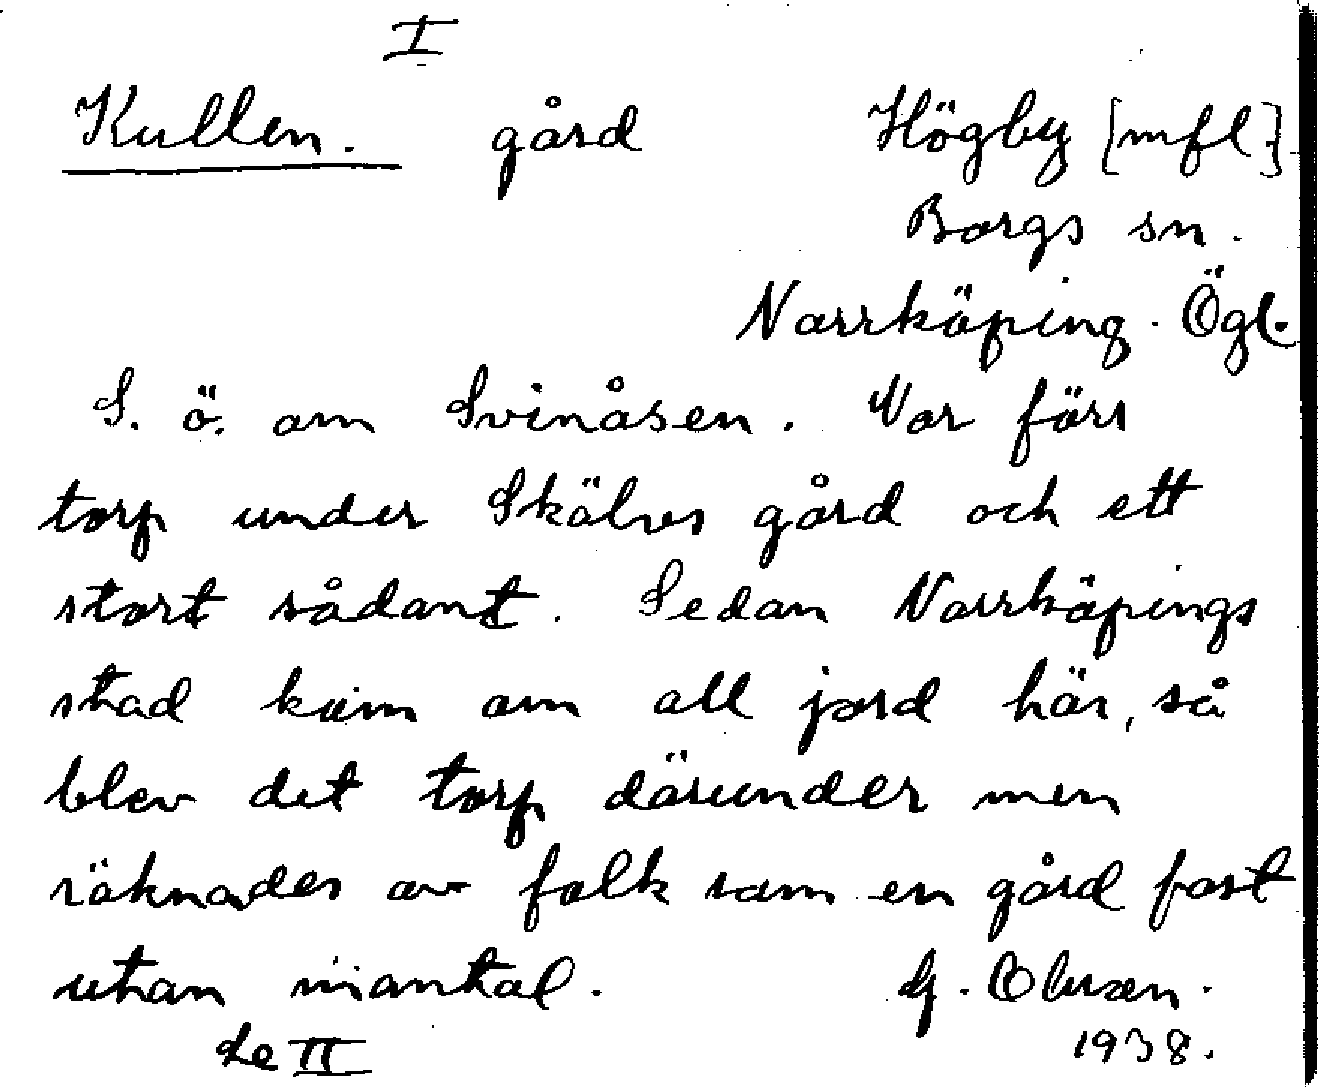 I
Kullen. gård Högby [mfl]
Borgs sn.
Norrköping. Ögl.
S. ö. om Svinåsen. Var förr
torp under Skälves gård och ett
stort sådant. Sedan Norrköpings
stad kom om all jord här, så
blev det torp därunder men
räknades av folk som en gård fast
utan mantal. G. Olsson.
Se II 1938.